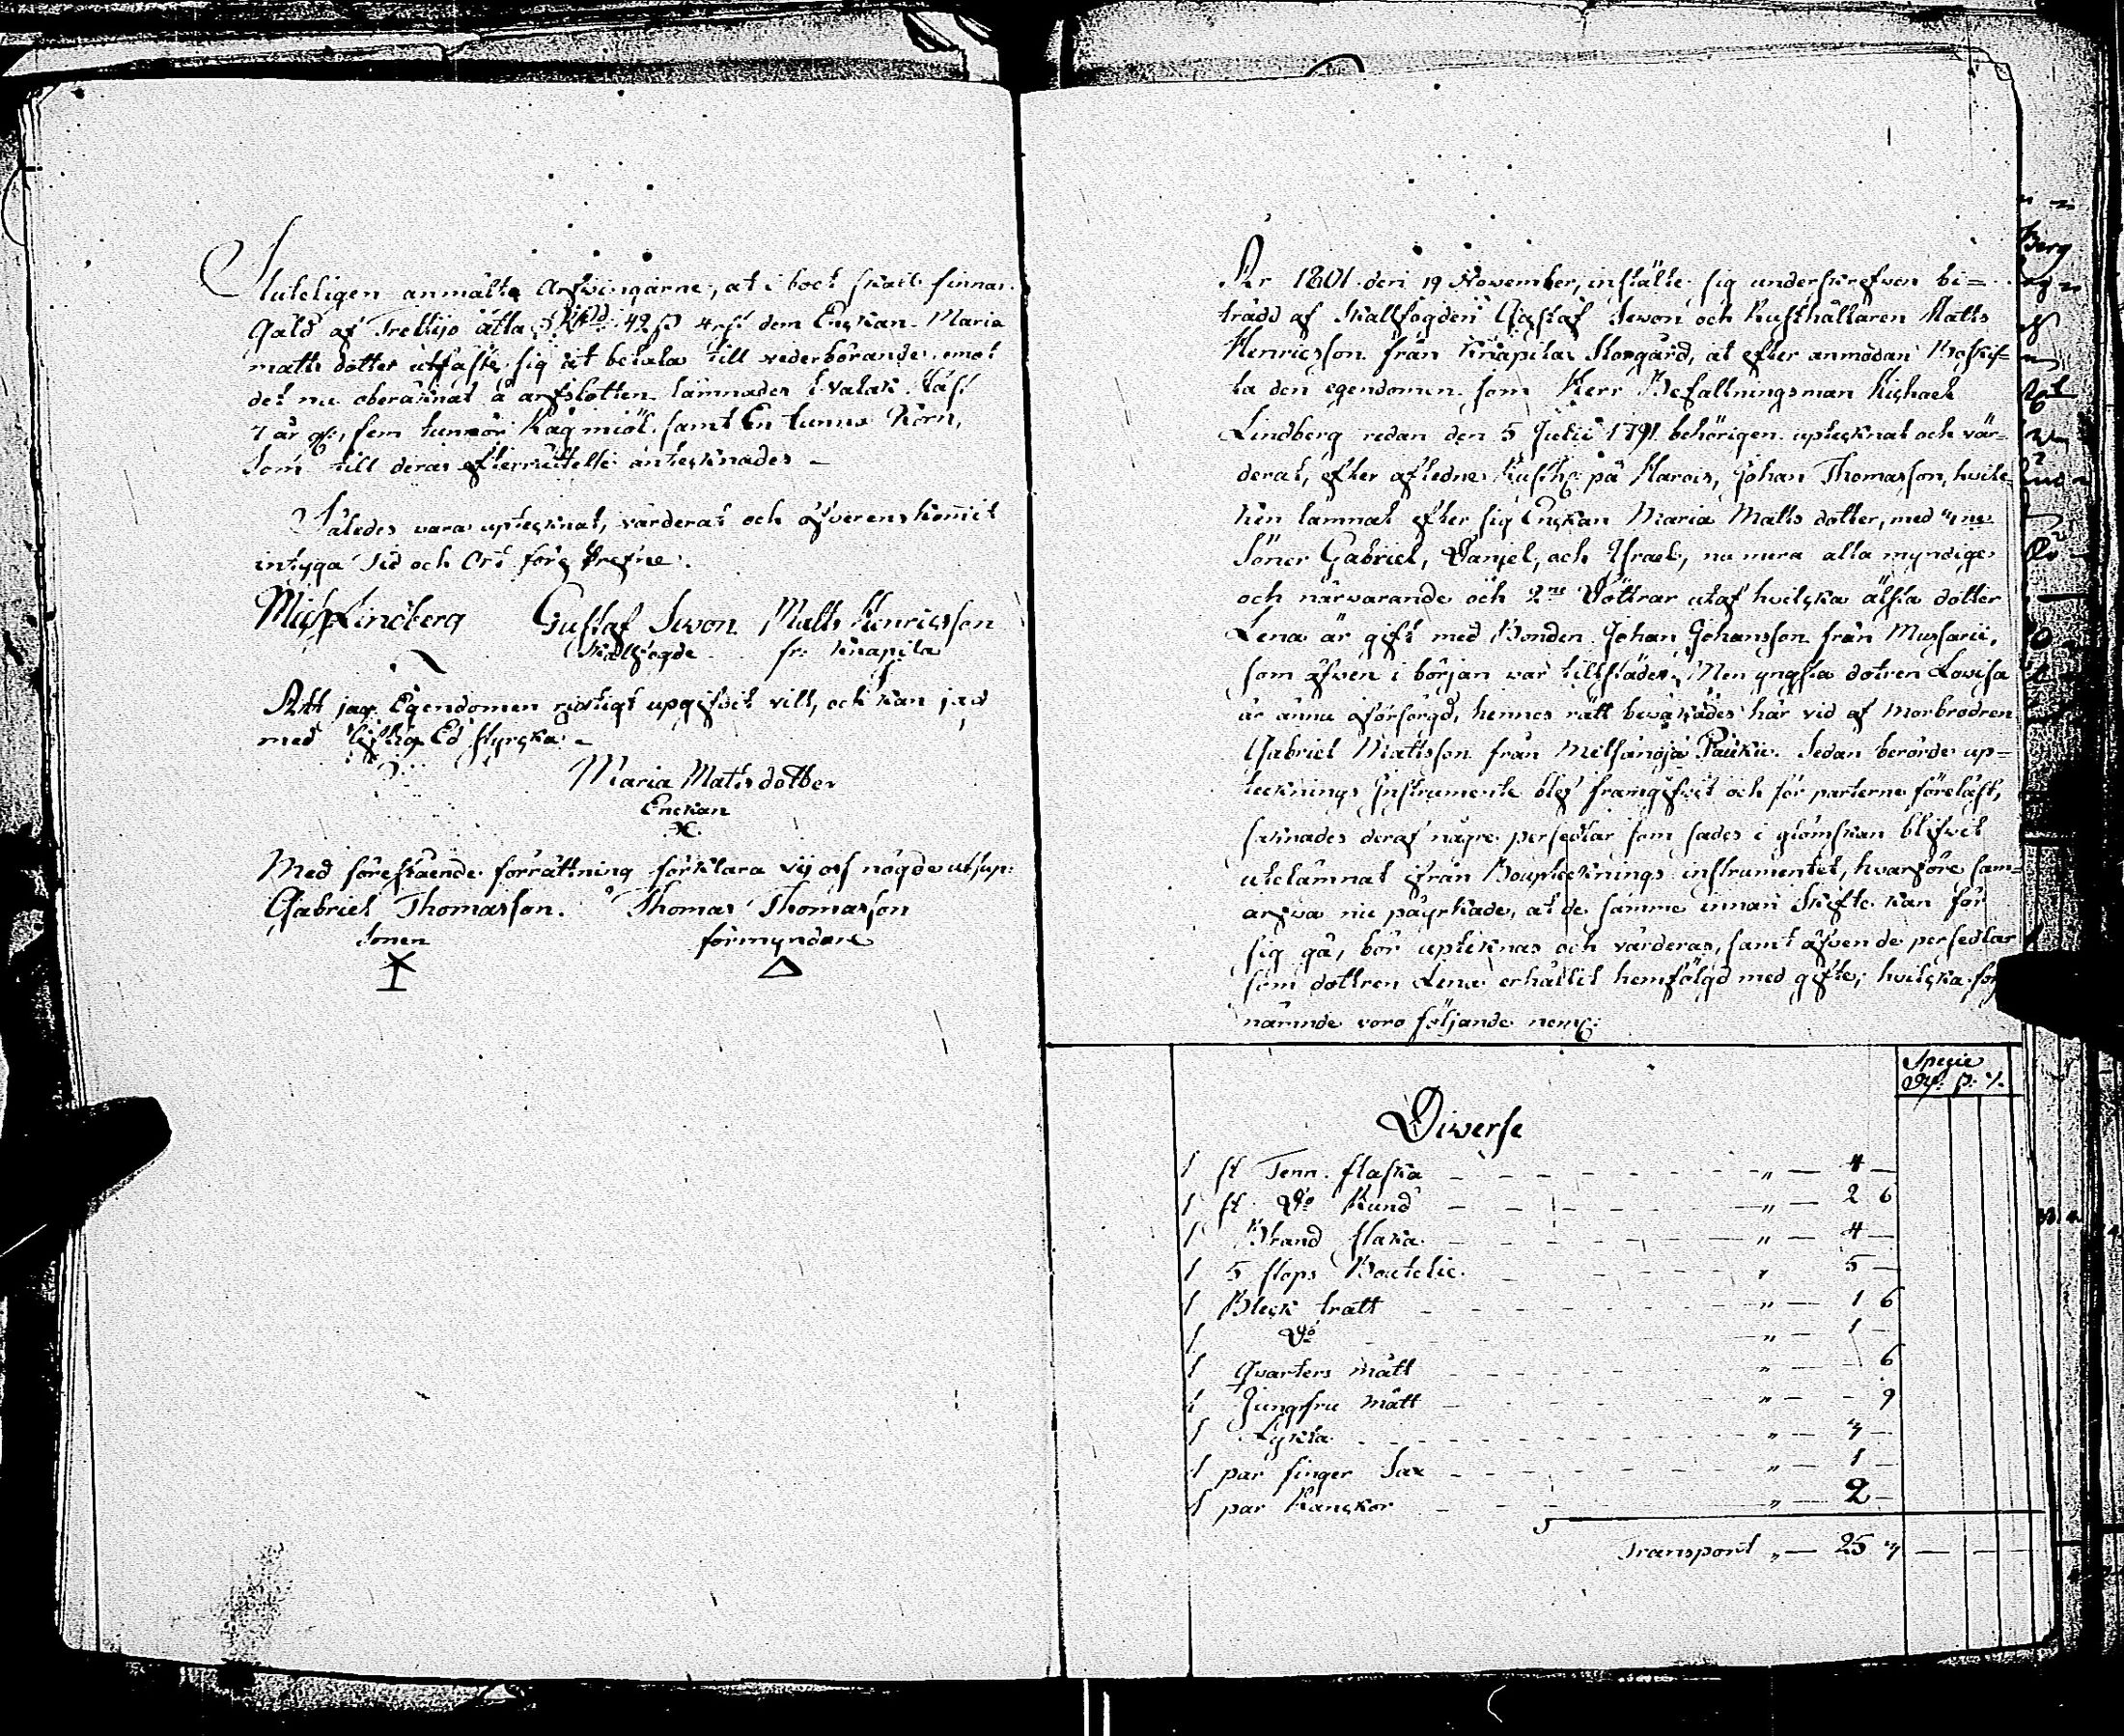 Sluteligen anmälte Arfwingarne, at i boet skall finnas
Gäld af Trettijo åtta Rd 42 ß 4 rs dem Enckan Maria
matts dotter utfäste sig at betala till vederbörande, emot
det nu oberäknat å arfslotten lämnades
7 år gl, fem tunnor Rågmiöl samt En tunna Korn,
Som till deras efterrättelse antecknades –
Således vara uptecknat, värderat och öfverenskommit
intyga Tid och Ort föreskrefne.
Mich Lindberg Gustaf Sewon Matts Henricsson
Skallfogde fr: Knapila
Att jag Egendomen ricktigt upgifvit vill, och kan jag
med liflig Ed styrcka –
Maria Matts dotter
Enckan
Med föreståendе förrättning förklara vij oss nögde utsup:
Gabriel Thomasson. Thomas Thomasson
Sonen förmyndare
År 1801 den 19 November, instälte sig underskrefven bi=
trädd af Skallfogden Gustaf Sewon och Rusthållaren Matts
Henricsson från Knapila Storgård, at efter anmodan
ta den egendomen som Herr Befallningsman Michael
Lindberg redan den 5 Julii 1791 behörigen uptecknat och vär-
derat, efter afledne Rusth: på Marois, Johan Thomasson, hvilc-
ken lämnat efter sig Enckan Maria Matts dotter, med
Söner Gabriel, Daniel, och Israel, nu mera alla myndige
och närvarande och 2ne Döttrar utaf hvilcka älsta dotter
Lena är gift med Bonden Johan Johansson från
som äfwen i början var tillstädes, Men yngsta dotren Lovisa
är ännu oförsörgd, hennes rätt bevakades här vid af Morbrodren
Gabriel Mattsson från Paukku. Sedan berörde up=
tecknings Instrumente blef framgifvit och för parterne föreläst,
saknades deraf någre persedlar som sades i glömskan blifvit
utelämnat ifrån Bouptecknings instrumentet, hvarföre sam=
arfva nu påyrkade, at de samme innan Skifte kan för
sig gå, bör uptecknas och värderas, samt äfven de persedlar
som dottren Lena erhållit hemfölgd med gifte, hvilcka för
närmde voro följande neml:
Specie
Rd: ß: r.
Diverse
1 st Tenn. flaska – – – " – 4 –
1 st Do Kund – – – " – 2 6
1 Brand flaska – – – " – 4 –
1 5 stops Boutelie – – – " 5 –
1 Bleck tratt – – – " – 1 6
1 Do " – 1 –
1 Qvarters mått – – – " – – 6
1 Jungfru mått – – – " – – 9
1 Lykta – – – " – 3 –
1 par finger Sax – – – " – 1 –
1 par – – – " – 2 –
Transport " – 25 3 – – –